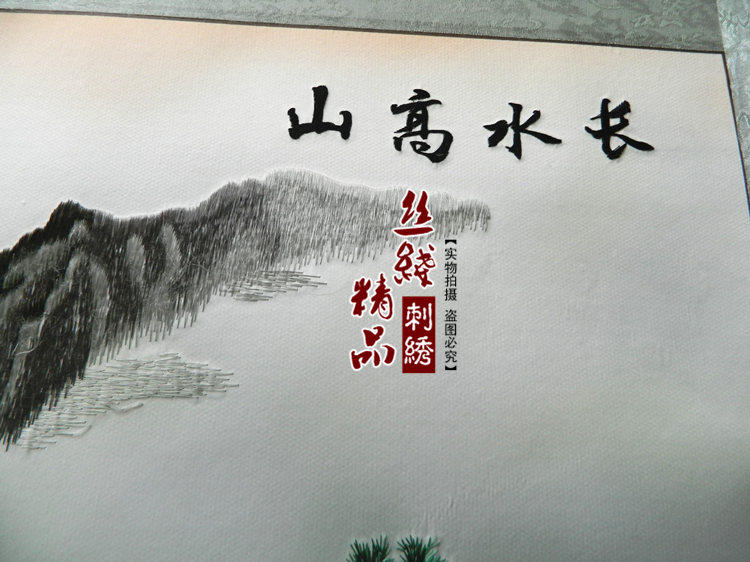 山高水长
丝线
精品
刺綉
【实物拍摄 盗图必究】